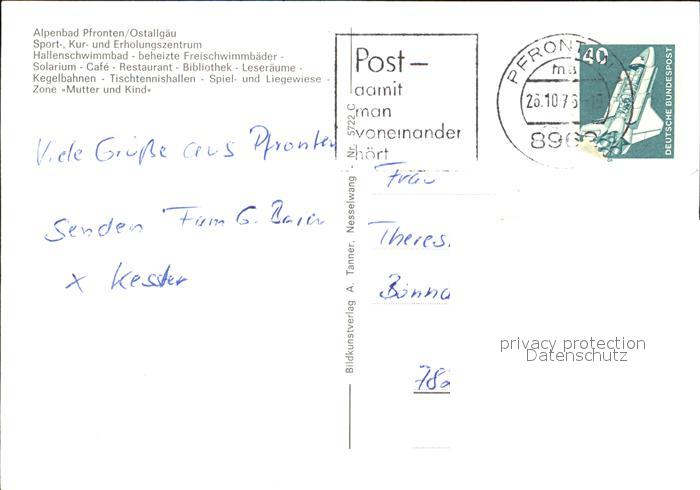 Alpenbad Pfronten/Ostallgäu
Sport-, Kur- und Erholungszentrum
Hallenschwimmbad - beheizte Freischwimmbäder -
Solarium - Café - Restaurant - Bibliothek - Leseräume -
Kegelbahnen - Tischtennishallen - Spiel- und Liegewiese -
Zone »Mutter und Kind«
Viele Grüße aus Pfronten
Senden Fam G.
x Kessler
Bildkunstverlag A. Tanner, Nesselwang - Nr. 5722 C
Post-
damit
man
voneinander
hört
PFRONT
26.10.76
896
40
DEUTSCHE BUNDESPOST
Frau
Theres.
Bönna
78
privacy protection
Datenschutz